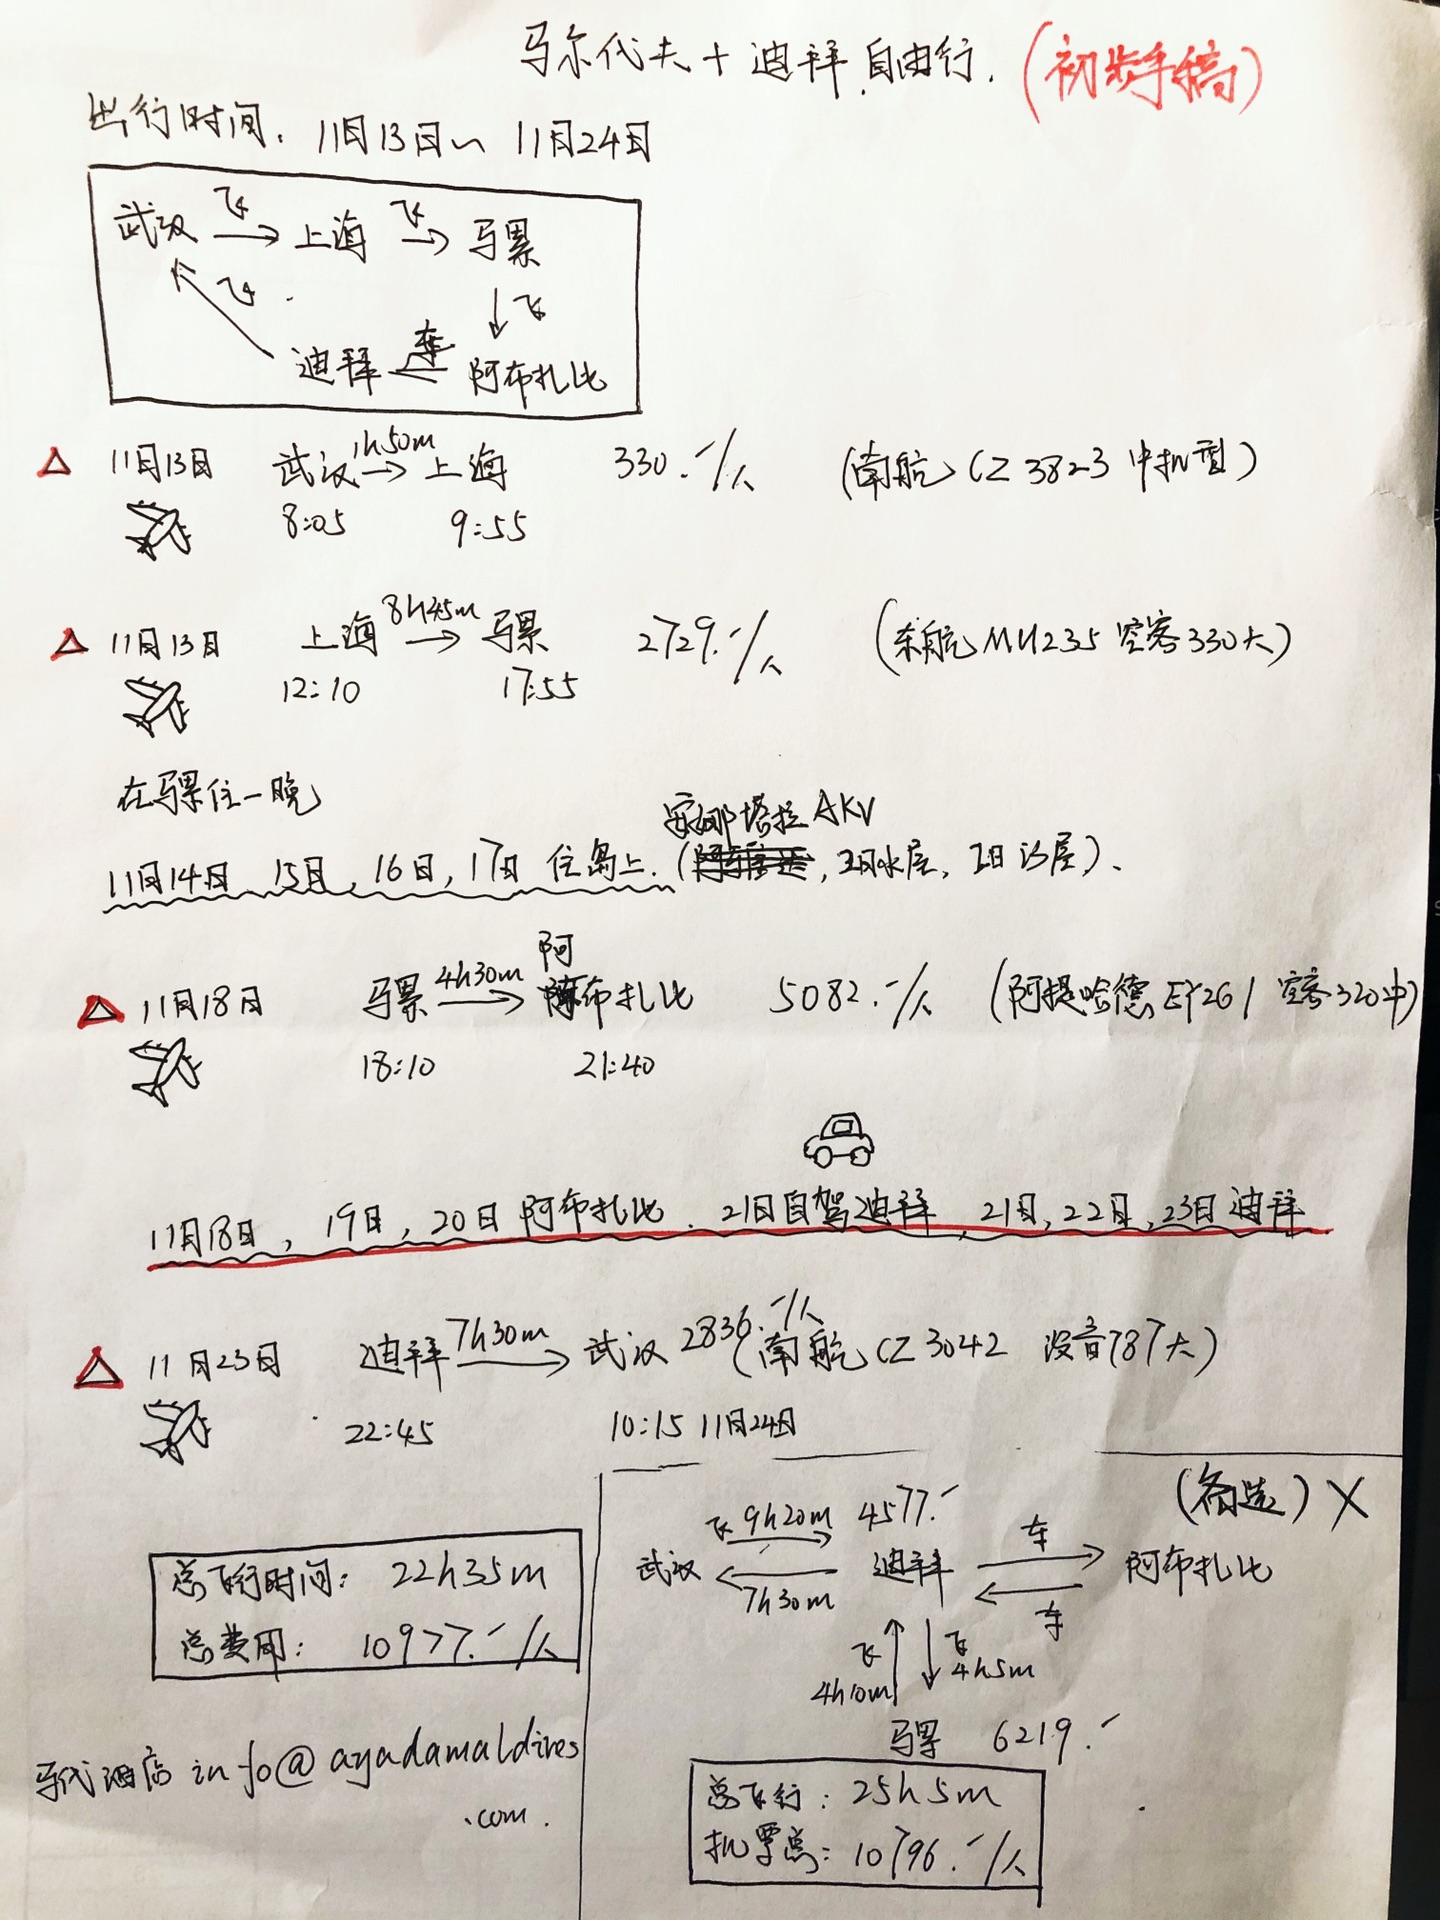 马尔代夫+迪拜自由行.(初步手稿)
出行时间: 11月13日~11月24日
武汉 飞→ 上海 飞→ 马累
飞 ↓飞
迪拜 车← 阿布扎比
△ 11月13日 武汉 1h50m→ 上海 330.-/人 (南航CZ3823中机型)
8:05 9:55
△ 11月13日 上海 8h45m→ 马累 2729.-/人 (东航MU235空客330大)
12:10 17:55
在马累住一晚
安娜塔拉AKV
11月14日,15日,16日,17日住岛上.(2日水屋,2日沙屋)、
△ 11月18日 马累 4h30m→ 阿布扎比 5082.-/人 (阿提哈德EY261空客320中)
18:10 21:40
11月18日,19日,20日阿布扎比.21日自驾迪拜,21日,22日,23日迪拜
△ 11月23日 迪拜 7h30m→ 武汉 2836.-/人 (南航CZ3042 波音787大)
22:45 10:15 11月24日
总飞行时间: 22h35m
总费用: 10977.-/人
马代酒店info@ayadamaldives
.com.
(备选)X
飞9h20m 4577.- 车
武汉 迪拜 阿布扎比
7h30m 车
飞 飞
4h10m 4h5m
马累 6219.-
总飞行: 25h5m
机票总: 10796.-/人